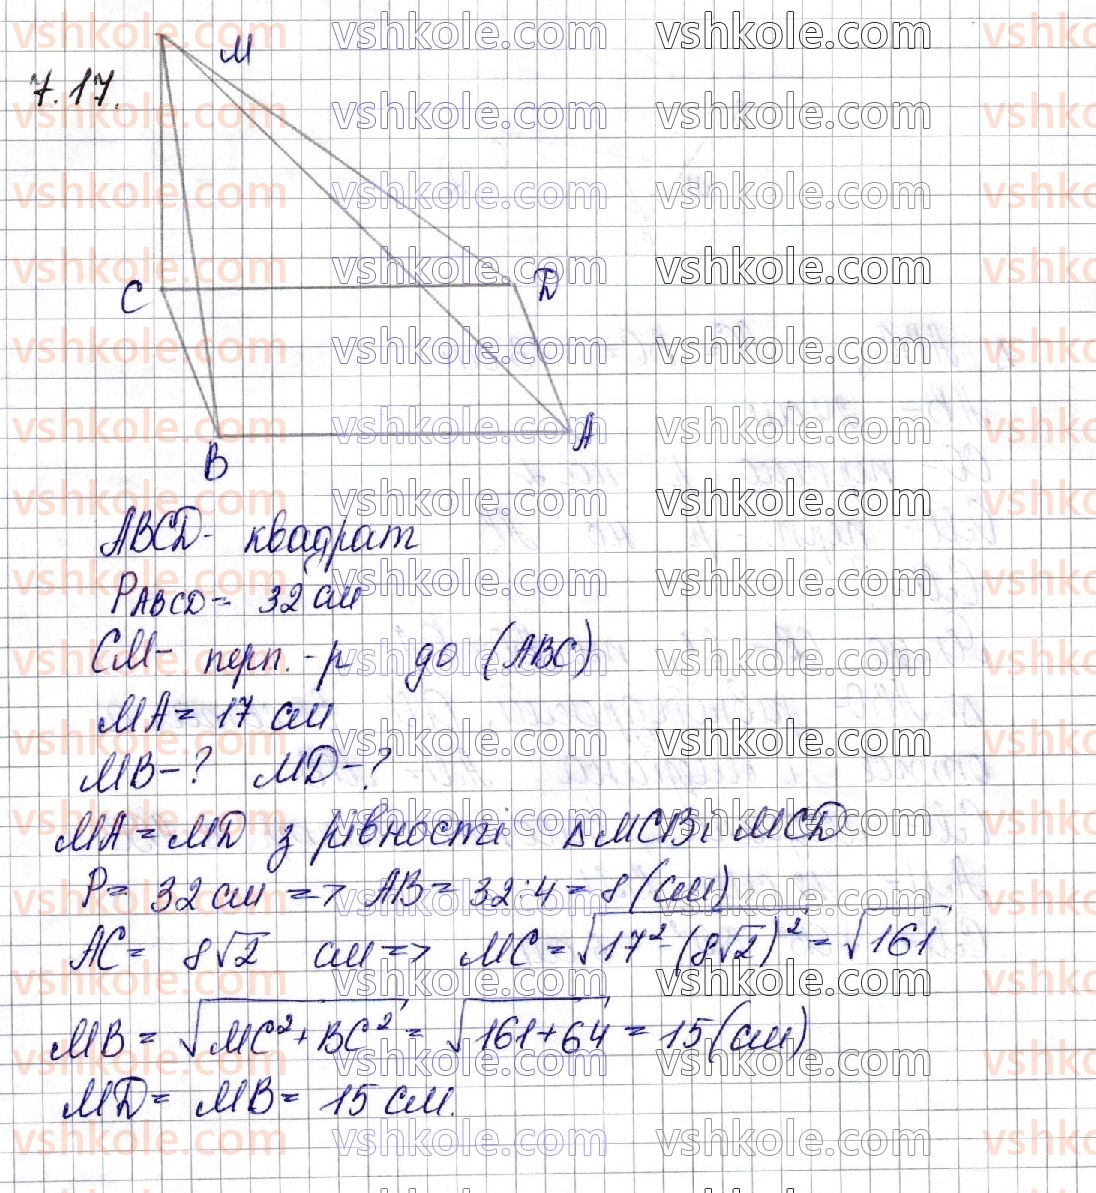 7.17.
M
C
D
B
A
ABCD- квадрат
P ABCD = 32 см
CM- перп.-р до (ABC)
MA = 17 см
MB-? MD-?
MA = MD з рівності ΔMCB і MCD
P = 32 см => AB = 32:4 = 8 (см)
AC = 8√2 см => MC = √17² - (8√2)² = √161
MB = √MC² + BC² = √161+64 = 15 (см)
MD = MB = 15 см.
vshkole.com